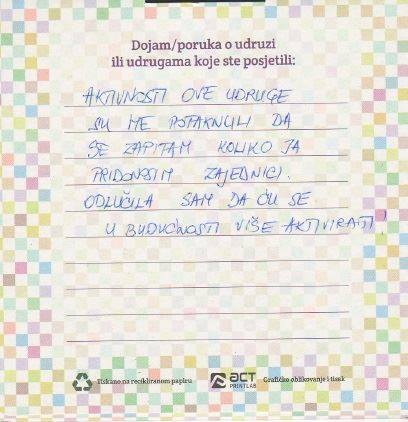 Dojam/poruka o udruzi
ili udrugama koje ste posjetili:
AKTIVNOSTI OVE UDRUGE
SU ME POTAKNULI DA
SE ZAPITAM KOLIKO JA
PRIDONOSIM ZAJEDNICI.
ODLUČILA SAM DA ĆU SE
U BUDUĆNOSTI VIŠE AKTIVIRATI!
Tiskano na recikliranom papiru
ACT PRINTLAB
Grafičko oblikovanje i tisak